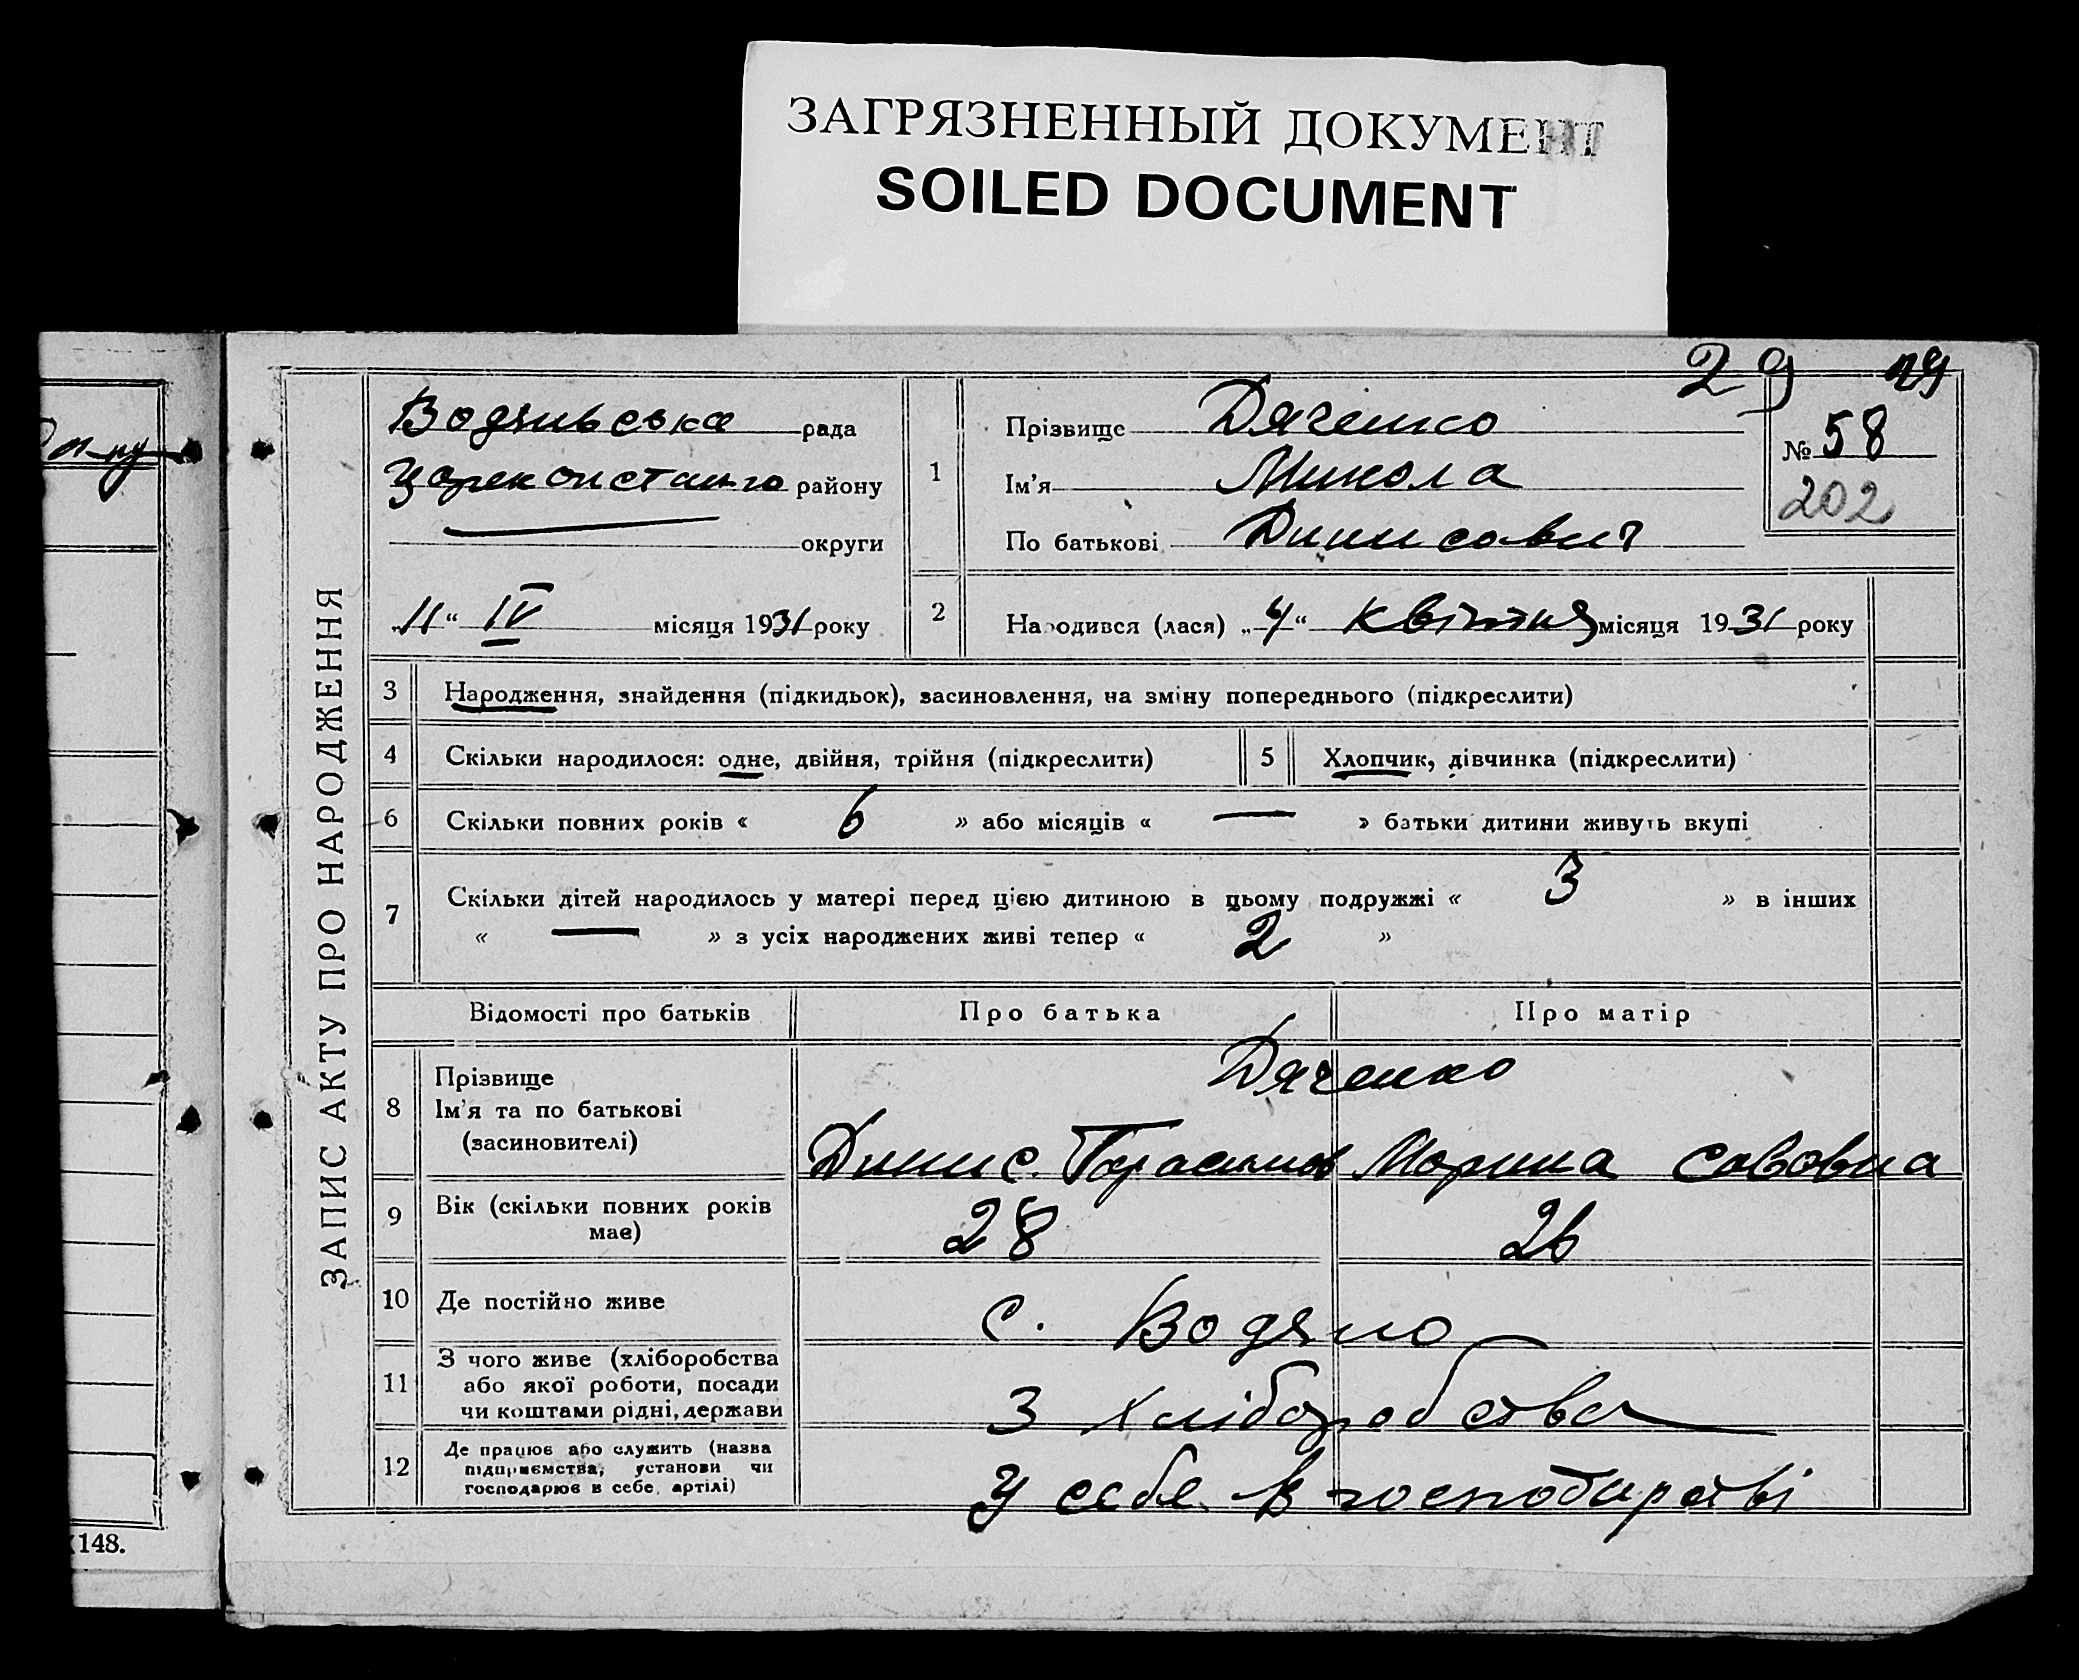 ЗАГРЯЗНЕННЫЙ ДОКУМЕНТ
SOILED DOCUMENT
29 29
ЗАПИС АКТУ ПРО НАРОДЖЕННЯ
Водянська рада
Царекконстантин району
округи
„11“ IV місяця 1931 року
1 Прізвище Дяченко
Ім'я Микола
По батькові Динисович
№ 58
202
2 Народився (лася) „4“ квітня місяця 1931 року
3 Народження, знайдення (підкидьок), засиновлення, на зміну попереднього (підкреслити)
4 Скільки народилося: одне, двійня, трійня (підкреслити) 5 Хлопчик, дівчинка (підкреслити)
6 Скільки повних років « 6 » або місяців « — » батьки дитини живуть вкупі
7 Скільки дітей народилось у матері перед цією дитиною в цьому подружжі « 3 » в інших
« — » з усіх народжених живі тепер « 2 »
Відомості про батьків Про батька Про матір
8 Прізвище Дяченко
Ім'я та по батькові
(засиновителі) Динис Герасимов Морина Сововна
9 Вік (скільки повних років
має) 28 26
10 Де постійно живе с. Водяно
11 З чого живе (хліборобства
або якої роботи, посади
чи коштами рідні, держави З хліборобства
12 Де працює або служить (назва
підприємства, установи чи
господарює в себе, артілі) У себе в господарстві
148.